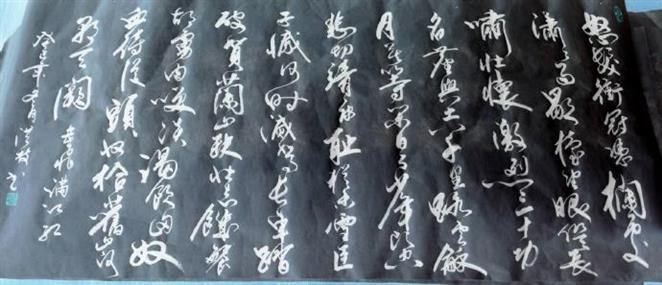 怒髮衝冠憑欄處
瀟瀟雨歇擡望眼仰天長
嘯壯懷激烈三十功
名塵與土八千里路雲和
月莫等閒白了少年頭空
悲切靖康恥猶未雪臣
子憾何時滅駕長車踏
破賀蘭山缺壯志飢餐
胡虜肉笑談渴飲匈奴
血待從頭收拾舊山河
朝天闕 岳飛滿江紅
癸未 月 書